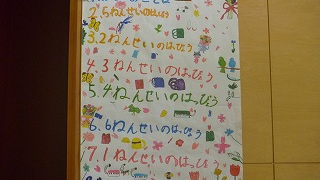 2.5ねんせいのはっぴょう
3.2ねんせいのはっぴょう
4.3ねんせいのはっぴょう
5.4ねんせいのはっぴょう
6.6ねんせいのはっぴょう
7.1ねんせいのはっぴょう